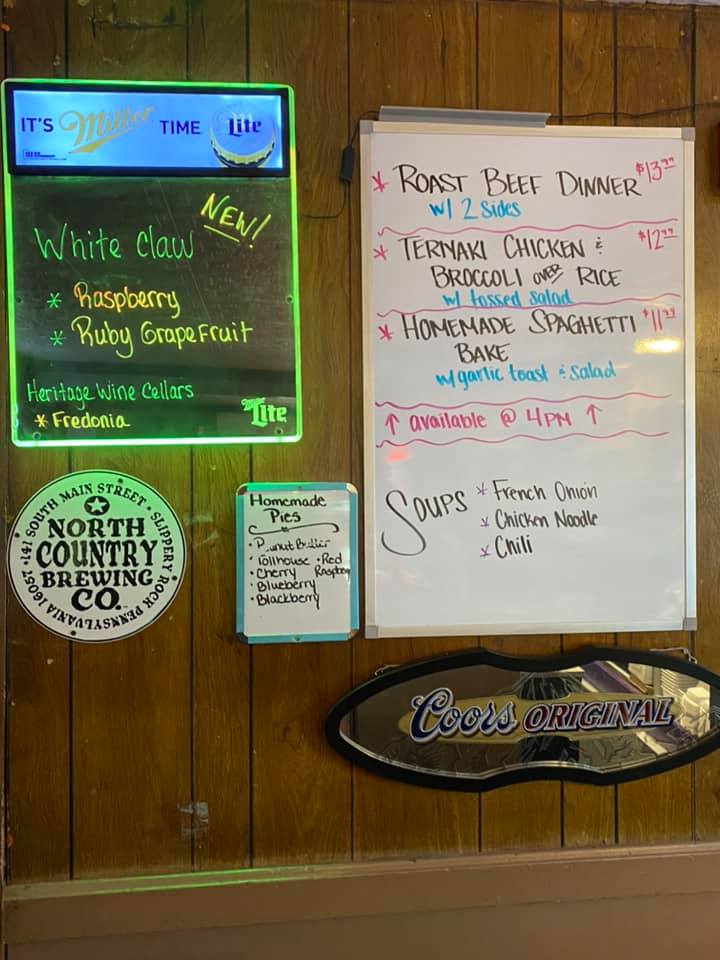 IT'S Miller TIME Lite
NEW!
White Claw
* Raspberry
* Ruby Grapefruit
Heritage Wine Cellars
* Fredonia
Miller Lite
* ROAST BEEF DINNER $13.99
w/ 2 Sides
* TERIYAKI CHICKEN & $12.99
BROCCOLI OVER RICE
w/ tossed salad
* HOMEMADE SPAGHETTI $11.99
BAKE
w/ garlic toast & salad
↑ available @ 4PM ↑
SOUPS
* French Onion
* Chicken Noodle
* Chili
147 SOUTH MAIN STREET • SLIPPERY ROCK PENNSYLVANIA 16057 •
NORTH
COUNTRY
BREWING
CO.
Homemade
Pies
• Peanut Butter
• Tollhouse • Red
• Cherry Raspberry
• Blueberry
• Blackberry
Coors ORIGINAL